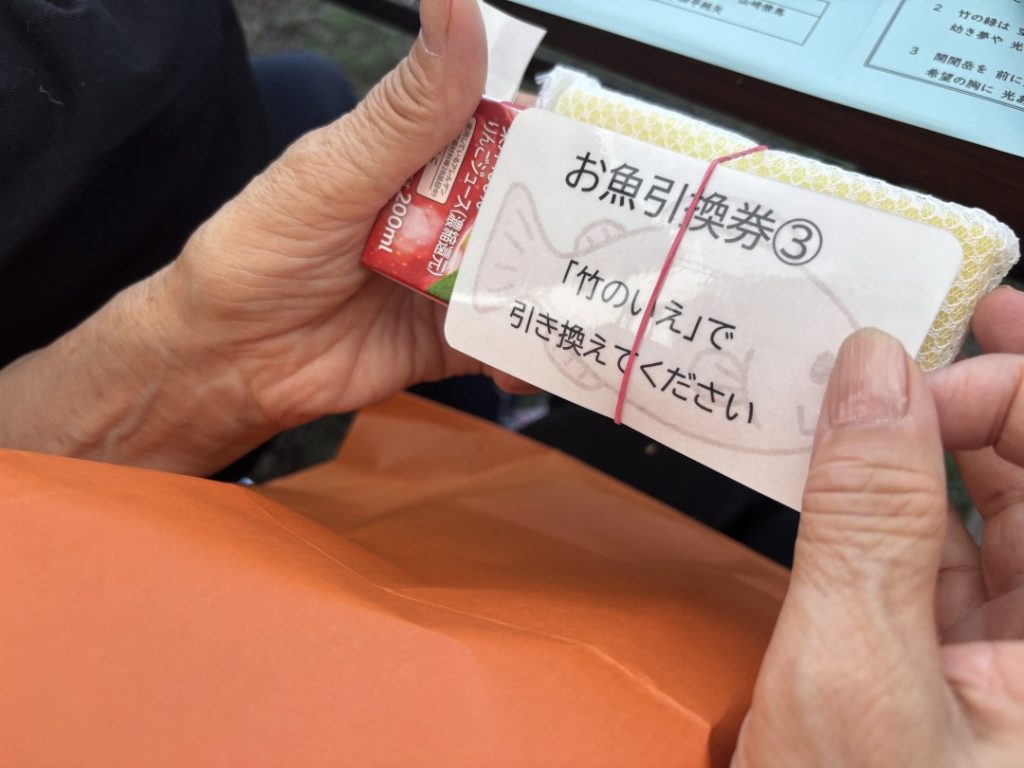 2 竹の緑は
幼き夢や 光
3 開聞岳を 前に
希望の胸に 光あ
りんごジュース(濃縮還元)
200ml
お魚引換券③
「竹のいえ」で
引き換えてください